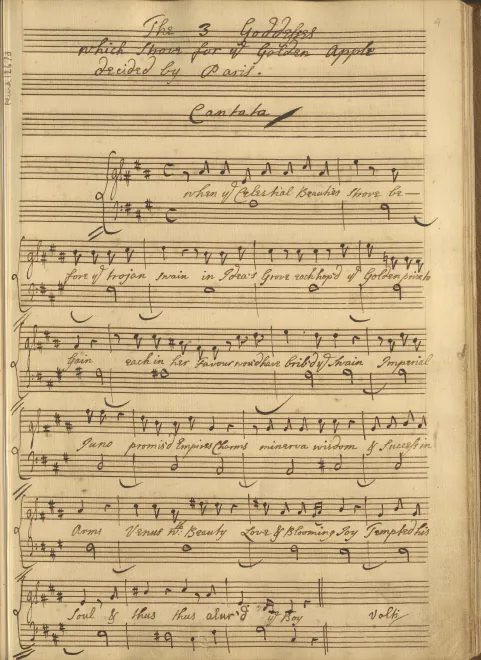 The 3 Goddesses
which strove for ye Golden Apple
decided by Paris.
Cantata
when ye Celestial Beauties strove be—
fore ye trojan swain in Idea's Grove each hop'd ye Golden prize to
Gain each in her Favour now'd have brib'd ye swain Imperial
Juno promis'd Empires Charms minerva wisdom & Success in
Arms Venus th: Beauty Love & Blooming Joy Tempted his
Soul & thus thus alur'd ye Boy Volti